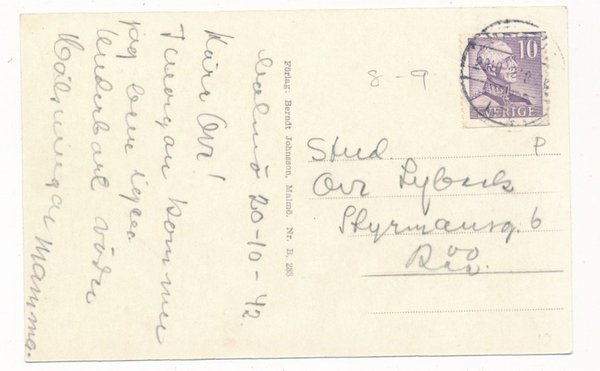 Malmö 20-10-42.
Kära Ove!
I morgon kommer
jag hem igen
Underbart väder
Hälsningar Mamma.
Förlag: Berndt Johnsson, Malmö. Nr. B, 288
8-9
10
SVERIGE
P
Stud
Ove Lybeck
Styrmansg. 6
Råå.